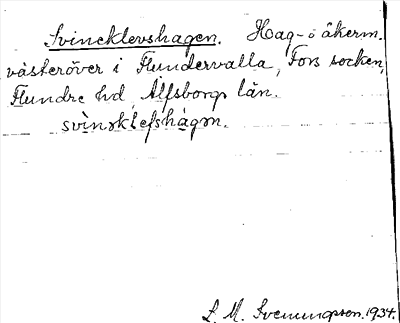 Svineklevshagen. Hag- o åkerm.
västeröver i Flundervalla, Fors socken,
Flundre hd, Älfsborgs län.
svìnəklefshàgən.
L. M. Svenungsson. 1934.